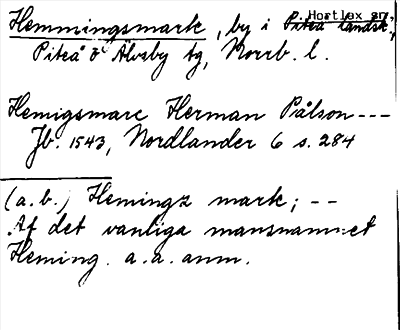 Hemmingsmark, by i Hortlax sn,
Piteå landsk,
Piteå o Älvsby tg, Norrb. l.
Hemigsmarc Herman Pålson ---
Jb. 1543, Nordlander 6 s. 284
(a. b.) Hemingz mark; --
Af det vanliga mansnamnet
Heming. a. a. anm.